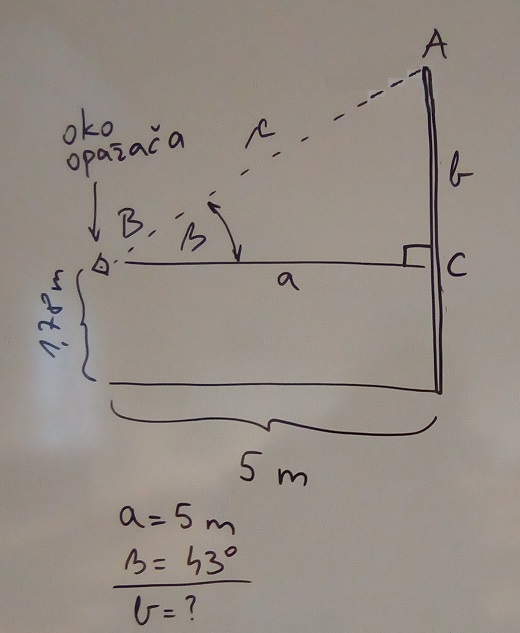 A
oko
opažača
c
b
B
β
C
a
1,78 m
5 m
a = 5 m
β = 43°
b = ?